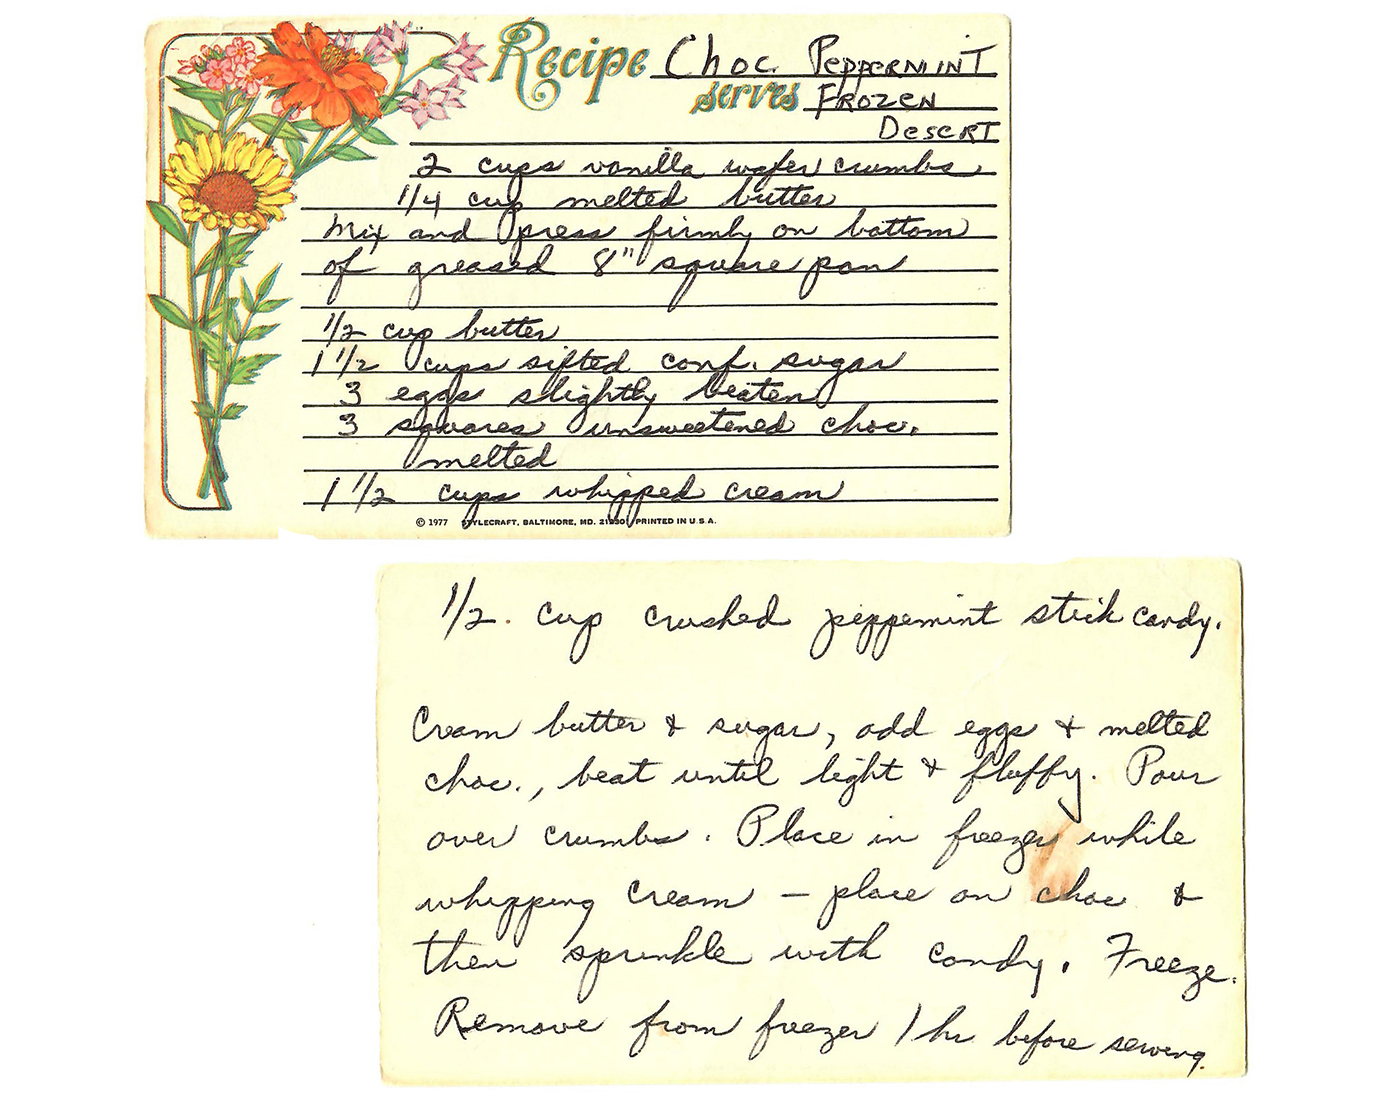 Recipe Choc Peppermint
serves Frozen
Desert
2 cups vanilla wafer crumbs
1/4 cup melted butter
Mix and press firmly on bottom
of greased 8" square pan
1/2 cup butter
1 1/2 cups sifted conf. sugar
3 eggs slightly beaten
3 squares unsweetened choc.
melted
1 1/2 cups whipped cream
© 1977 STYLECRAFT, BALTIMORE, MD. PRINTED IN U.S.A.
1/2. cup crushed peppemint stick candy.
Cream butter & sugar, add eggs & melted
choc., beat until light & fluffy. Pour
over crumbs. Place in freezer while
whipping cream – place on choc &
then sprinkle with candy. Freeze.
Remove from freezer 1 hr before serving.